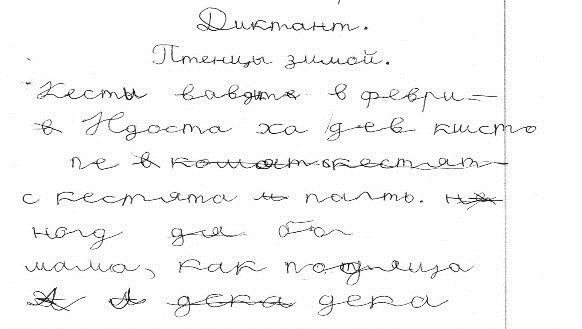 Диктант.
Птенцы зимой.
Кесты вавдте в феври-
в Ндоста ха дев кисто
пе в кошат кестят
с кестята и палть. на
нагд для бог
мама, как подяща
А А дека дека